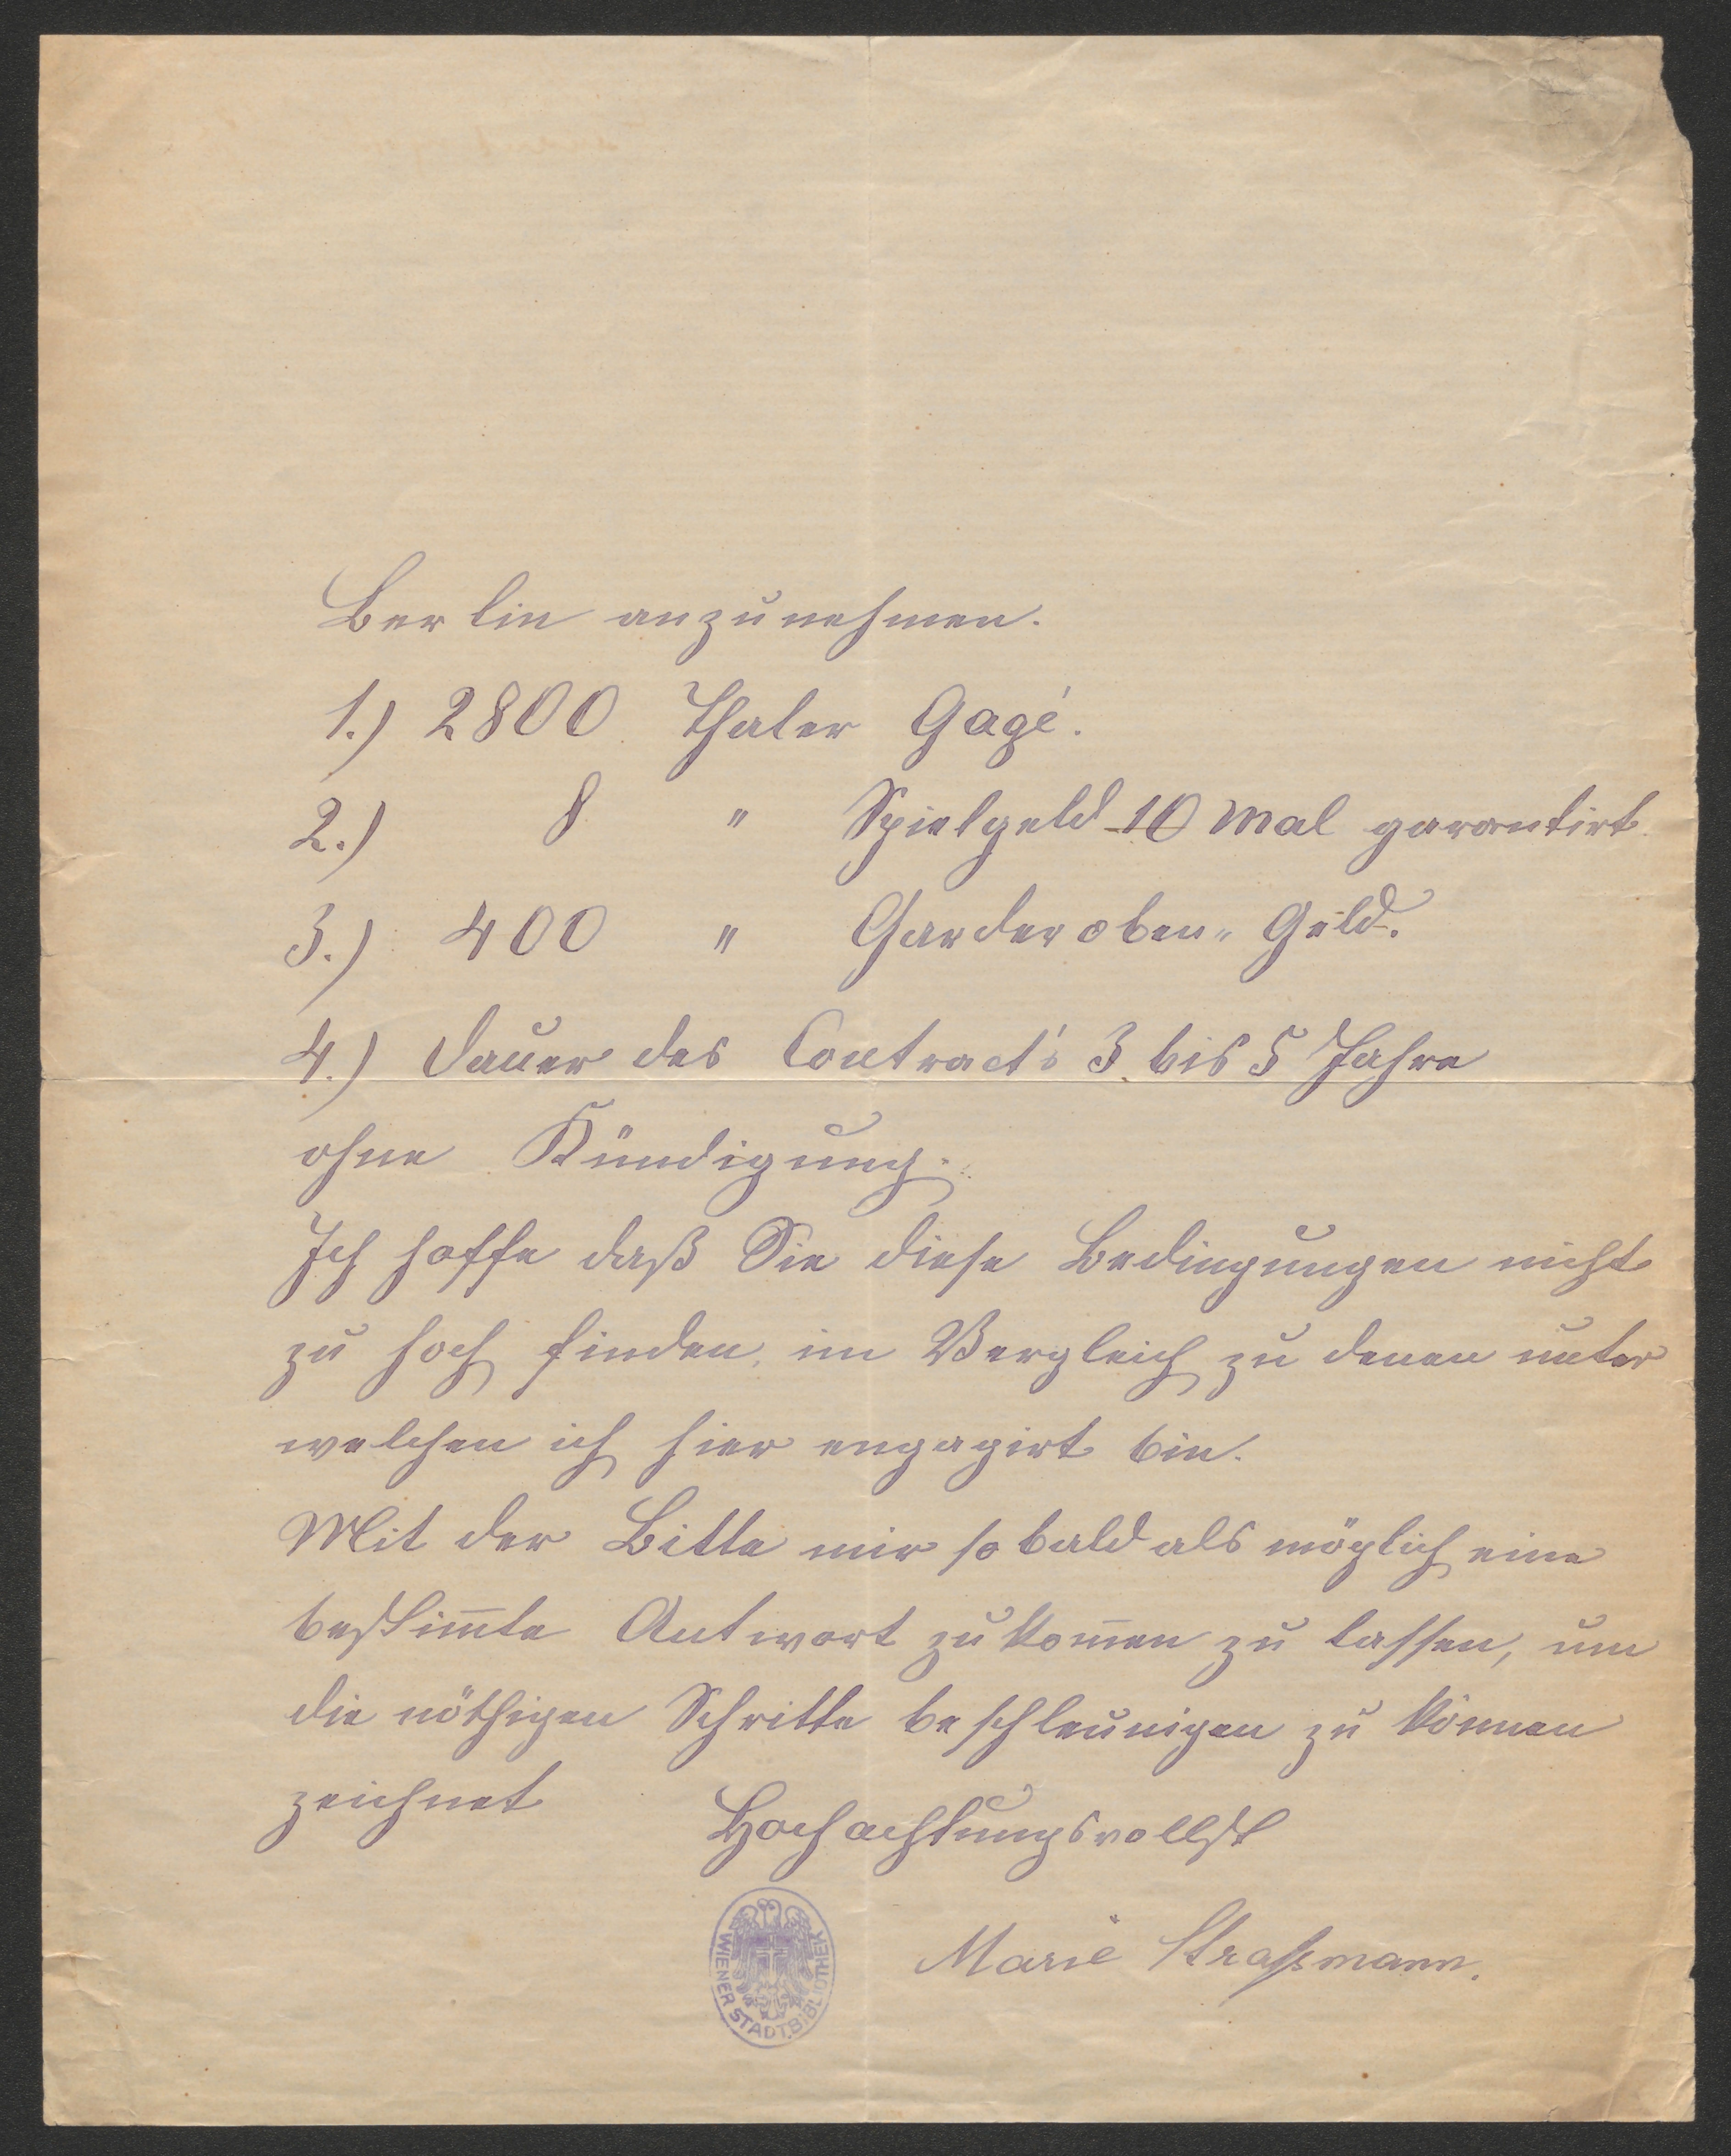 Berlin anzunehmen.
1.) 2800 Thaler Gagé.
2.) 8 " Spielgeld 10 Mal garantirt
3.) 400 " Garderoben-Geld.
4.) Dauer des Contract's 3 bis 5 Jahre
ohne Kündigung.
Ich hoffe daß Sie diese Bedingungen nicht
zu hoch finden, im Vergleich zu denen unter
welchen ich hier engagirt bin.
Mit der Bitte mir so bald als möglich eine
bestim̄te Antwort zukom̄en zu lassen, um
die nöthigen Schritte beschleunigen zu können
zeichnet
Hochachtungsvollst
Marie Straßmann.
WIENER STADT.BIBLIOTHEK